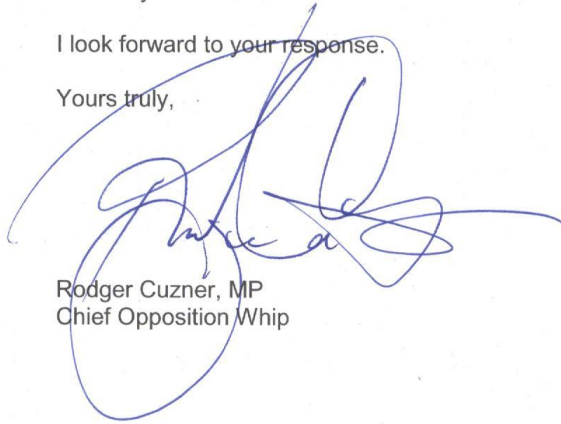 I look forward to your response.
Yours truly,
Rodger Cuzner, MP
Chief Opposition Whip